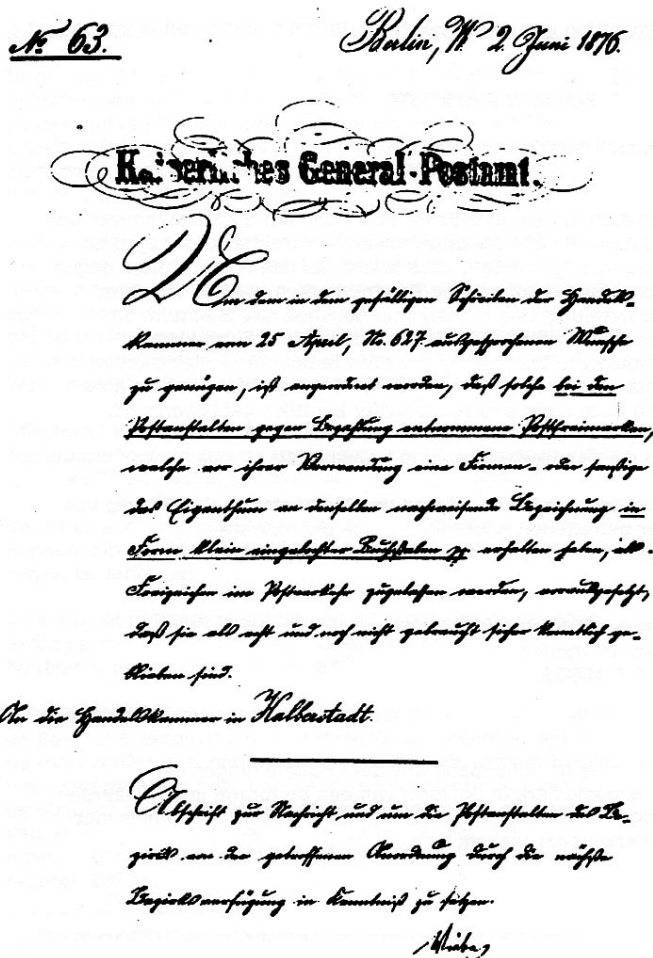 No 63.
Berlin, W. 2 Juni 1876.
Kaiserliches General-Postamt.
Um dem in dem gefälligen Schreiben der Handels-
kammer vom 25 April, No. 627 ausgesprochenen Wunsche
zu genügen, ist angeordnet worden, daß solche bei den
Postanstalten gegen Bezahlung entnommene Postfreimarken,
welche vor ihrer Verwendung eine Firmen- oder sonstige
das Eigenthum an denselben nachweisende Bezeichnung in
Form klein eingelochter Buchstaben pp erhalten haben, als
Freizeichen im Postverkehr zugelassen werden, vorausgesetzt,
daß sie als echt und noch nicht gebraucht sicher kenntlich ge-
blieben sind.
An die Handelskammer in Halberstadt.
Abschrift zur Nachricht und um die Postanstalten des Be-
zirks von der getroffenen Anordnung durch die nächste
Bezirksverfügung in Kenntniß zu setzen.
Wiebe